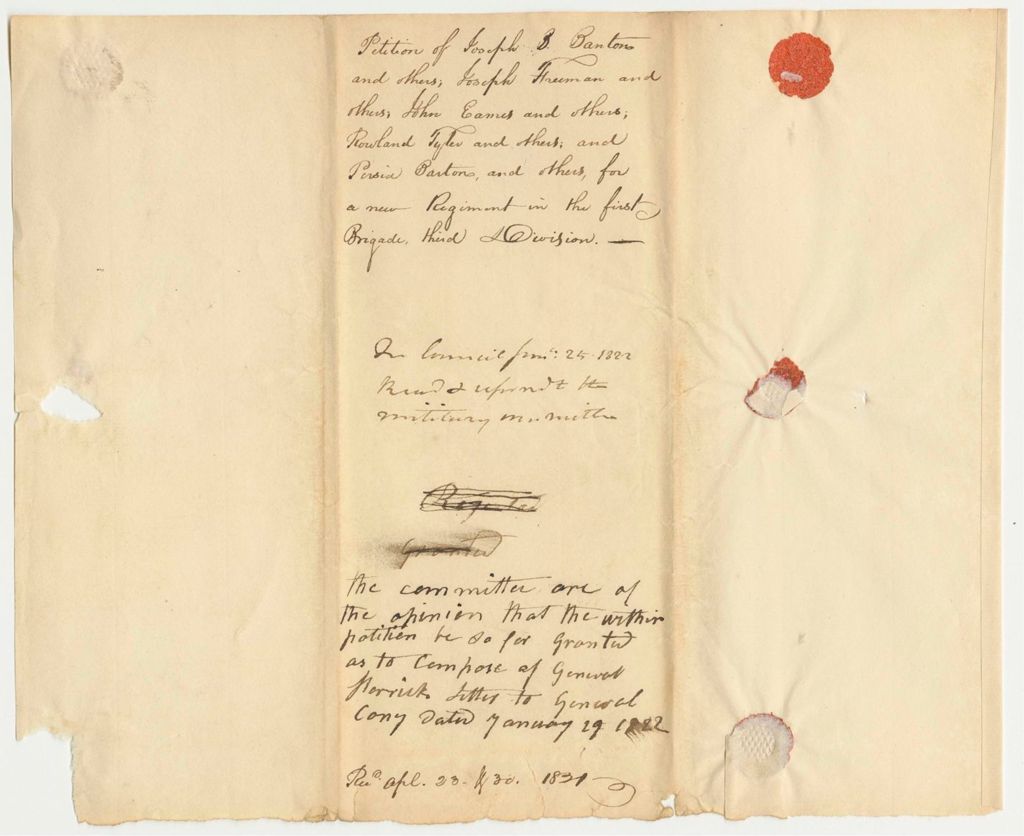 Petition of Joseph B. Barton
and others; Joseph Freeman and
others; John Eames and others;
Rowland Tyler and others; and
Persia Barton, and others, for
a new Regiment in the first
Brigade, third Division. —
In Council Jany: 25 1822
Read & referred to the
military committee
Granted
the committee are of
the opinion that the within
potition be so far Granted
as to Compose of General
Herricks Letter to General
Cony Dated January 19 1822
Recd. apl. 23. & 30. 1821